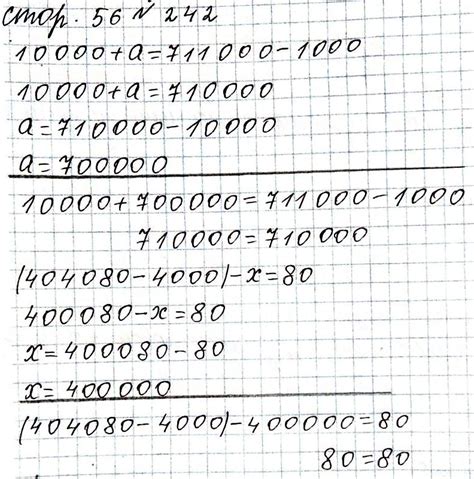 стор. 56 № 242
10000+а=711000-1000
10000+а=710000
а=710000-10000
а=700000
10000+700000=711000-1000
710000=710000
(404080-4000)-х=80
400080-х=80
х=400080-80
х=400000
(404080-4000)-400000=80
80=80